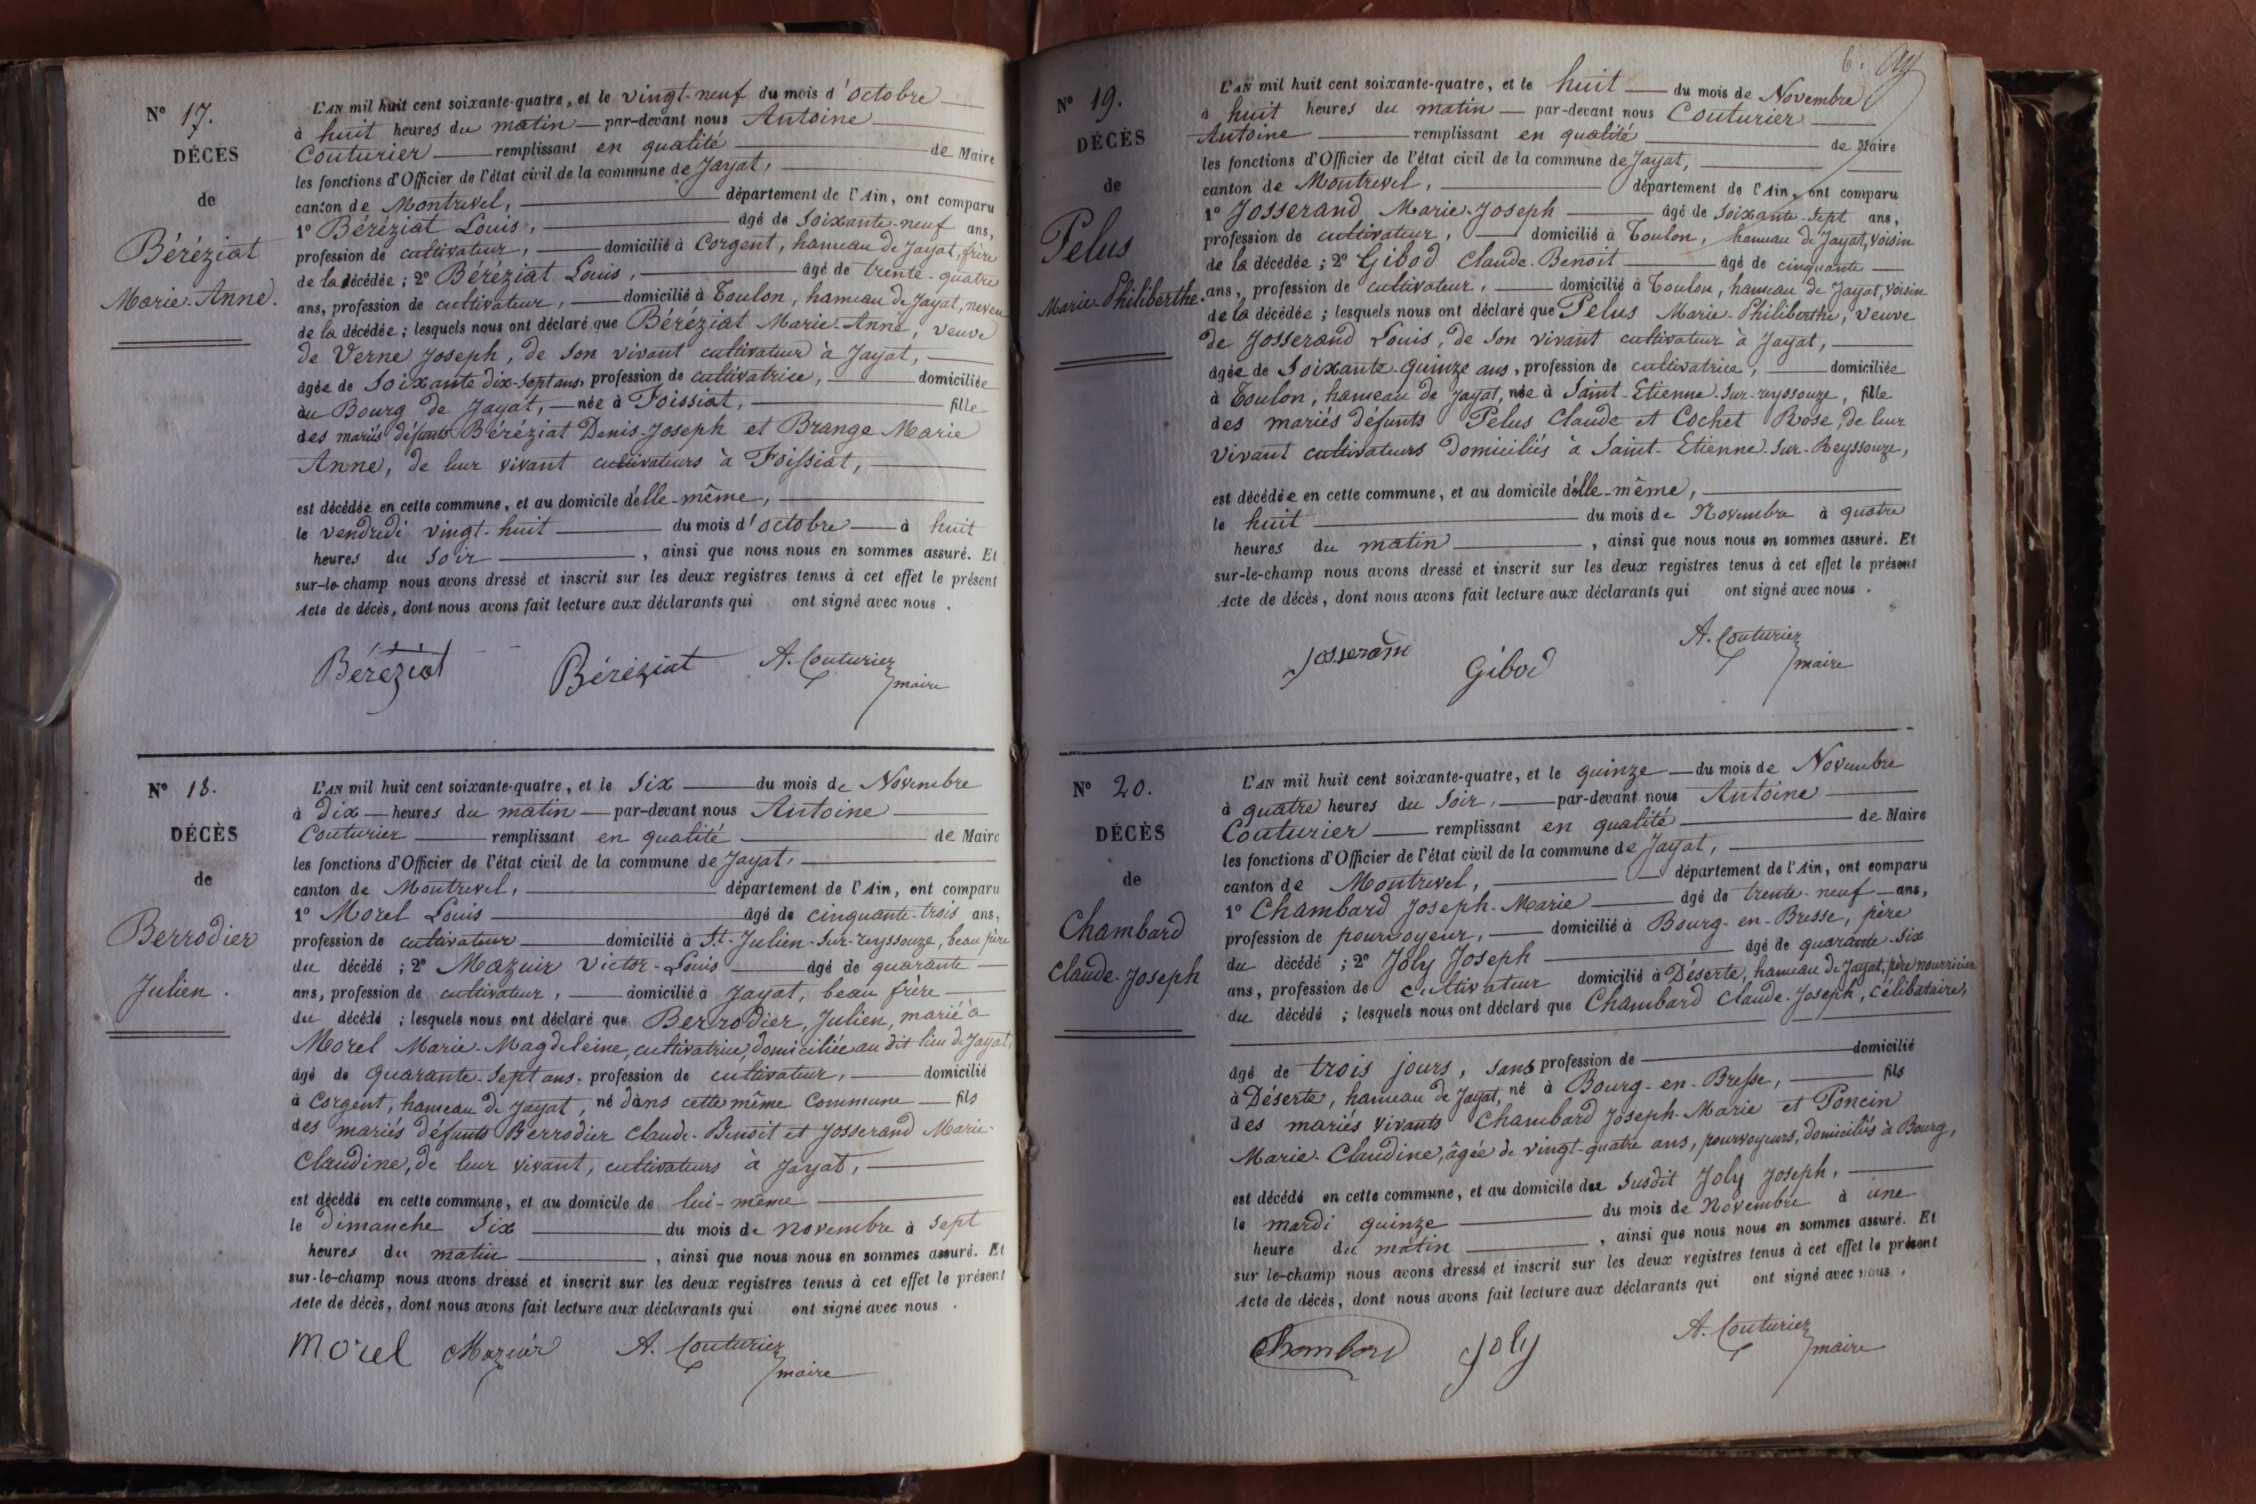 N° 17.
DÉCÈS
de
Béréziat
Marie-Anne.
L'AN mil huit cent soixante-quatre, et le vingt-neuf du mois d'octobre
à huit heures du matin par-devant nous Antoine
Couturier remplissant en qualité de Maire
les fonctions d'Officier de l'état civil de la commune de Jayat,
canton de Montrevel, département de l'Ain, ont comparu
1° Béréziat Louis, âgé de soixante-neuf ans,
profession de cultivateur, domicilié à Corgent, hameau de Jayat, frère
de la décédée; 2° Béréziat Louis, âgé de trente-quatre
ans, profession de cultivateur, domicilié à Toulon, hameau de Jayat, neveu
de la décédée; lesquels nous ont déclaré que Béréziat Marie-Anne, veuve
de Verne Joseph, de son vivant cultivateur à Jayat,
âgée de soixante dix-sept ans, profession de cultivatrice, domiciliée
au Bourg de Jayat, née à Foissiat, fille
des mariés défunts Béréziat Denis-Joseph et Brange Marie
Anne, de leur vivant cultivateurs à Foissiat,
est décédée en cette commune, et au domicile d'elle-même,
le vendredi vingt-huit du mois d'octobre à huit
heures du soir, ainsi que nous nous en sommes assuré. Et
sur-le-champ nous avons dressé et inscrit sur les deux registres tenus à cet effet le présent
Acte de décès, dont nous avons fait lecture aux déclarants qui ont signé avec nous.
Béréziat Béréziat A. Couturier
maire
N° 18.
DÉCÈS
de
Berrodier
Julien.
L'AN mil huit cent soixante-quatre, et le six du mois de Novembre
à dix heures du matin par-devant nous Antoine
Couturier remplissant en qualité de Maire
les fonctions d'Officier de l'état civil de la commune de Jayat,
canton de Montrevel, département de l'Ain, ont comparu
1° Morel Louis âgé de cinquante-trois ans,
profession de cultivateur domicilié à St-Julien-sur-reyssouze, beau père
du décédé; 2° Mazuir Victor-Louis âgé de quarante
ans, profession de cultivateur, domicilié à Jayat, beau frère
du décédé; lesquels nous ont déclaré que Berrodier, Julien, marié à
Morel Marie-Magdeleine, cultivatrice, domiciliée au dit lieu de Jayat,
âgé de quarante-sept ans, profession de cultivateur, domicilié
à Corgent, hameau de Jayat, né dans cette même Commune fils
des mariés défunts Berrodier Claude-Benoit et Josserand Marie-
Claudine, de leur vivant, cultivateurs à Jayat,
est décédé en cette commune, et au domicile de lui-même
le dimanche six du mois de novembre à sept
heures du matin, ainsi que nous nous en sommes assuré. Et
sur-le-champ nous avons dressé et inscrit sur les deux registres tenus à cet effet le présent
Acte de décès, dont nous avons fait lecture aux déclarants qui ont signé avec nous.
Morel Mazuir A. Couturier
maire
6.
N° 19.
DÉCÈS
de
Pelus
Marie-Philiberthe.
L'AN mil huit cent soixante-quatre, et le huit du mois de Novembre
à huit heures du matin par-devant nous Couturier
Antoine remplissant en qualité de Maire
les fonctions d'Officier de l'état civil de la commune de Jayat,
canton de Montrevel, département de l'Ain, ont comparu
1° Josserand Marie-Joseph âgé de soixante-sept ans,
profession de cultivateur, domicilié à Toulon, hameau de Jayat, voisin
de la décédée; 2° Gibod Claude-Benoit âgé de cinquante
ans, profession de cultivateur, domicilié à Toulon, hameau de Jayat, voisin
de la décédée; lesquels nous ont déclaré que Pelus Marie-Philiberthe, veuve
de Josserand Louis, de son vivant cultivateur à Jayat,
âgée de soixante-quinze ans, profession de cultivatrice, domiciliée
à Toulon, hameau de Jayat, née à Saint-Etienne-sur-reyssouze, fille
des mariés défunts Pelus Claude et Cochet Rose, de leur
vivant cultivateurs domiciliés à Saint-Etienne-sur-Reyssouze,
est décédée en cette commune, et au domicile d'elle-même,
le huit du mois de Novembre à quatre
heures du matin, ainsi que nous nous en sommes assuré. Et
sur-le-champ nous avons dressé et inscrit sur les deux registres tenus à cet effet le présent
Acte de décès, dont nous avons fait lecture aux déclarants qui ont signé avec nous.
Josserand Gibod A. Couturier
maire
N° 20.
DÉCÈS
de
Chambard
Claude-Joseph
L'AN mil huit cent soixante-quatre, et le quinze du mois de Novembre
à quatre heures du soir, par-devant nous Antoine
Couturier remplissant en qualité de Maire
les fonctions d'Officier de l'état civil de la commune de Jayat,
canton de Montrevel, département de l'Ain, ont comparu
1° Chambard Joseph-Marie âgé de trente-neuf ans,
profession de pourvoyeur, domicilié à Bourg-en-Bresse, père
du décédé; 2° Joly Joseph âgé de quarante-six
ans, profession de cultivateur domicilié à Déserte, hameau de Jayat, père nourricier
du décédé; lesquels nous ont déclaré que Chambard Claude-Joseph, célibataire,
âgé de trois jours, sans profession de domicilié
à Déserte, hameau de Jayat, né à Bourg-en-Bresse, fils
des mariés vivants Chambard Joseph-Marie et Poncin
Marie-Claudine, âgée de vingt-quatre ans, pourvoyeurs, domiciliés à Bourg,
est décédé en cette commune, et au domicile du susdit Joly Joseph,
le mardi quinze du mois de Novembre à une
heure du matin, ainsi que nous nous en sommes assuré. Et
sur le-champ nous avons dressé et inscrit sur les deux registres tenus à cet effet le présent
Acte de décès, dont nous avons fait lecture aux déclarants qui ont signé avec nous.
Chambard Joly A. Couturier
maire